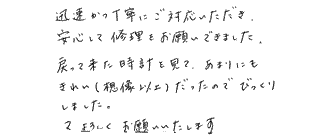 迅速かつ丁寧にご対応いただき、
安心して修理をお願いできました。
戻って来た時計を見て、あまりにも
きれい(想像以上)だったのでびっくり
しました。
よろしくお願いいたします